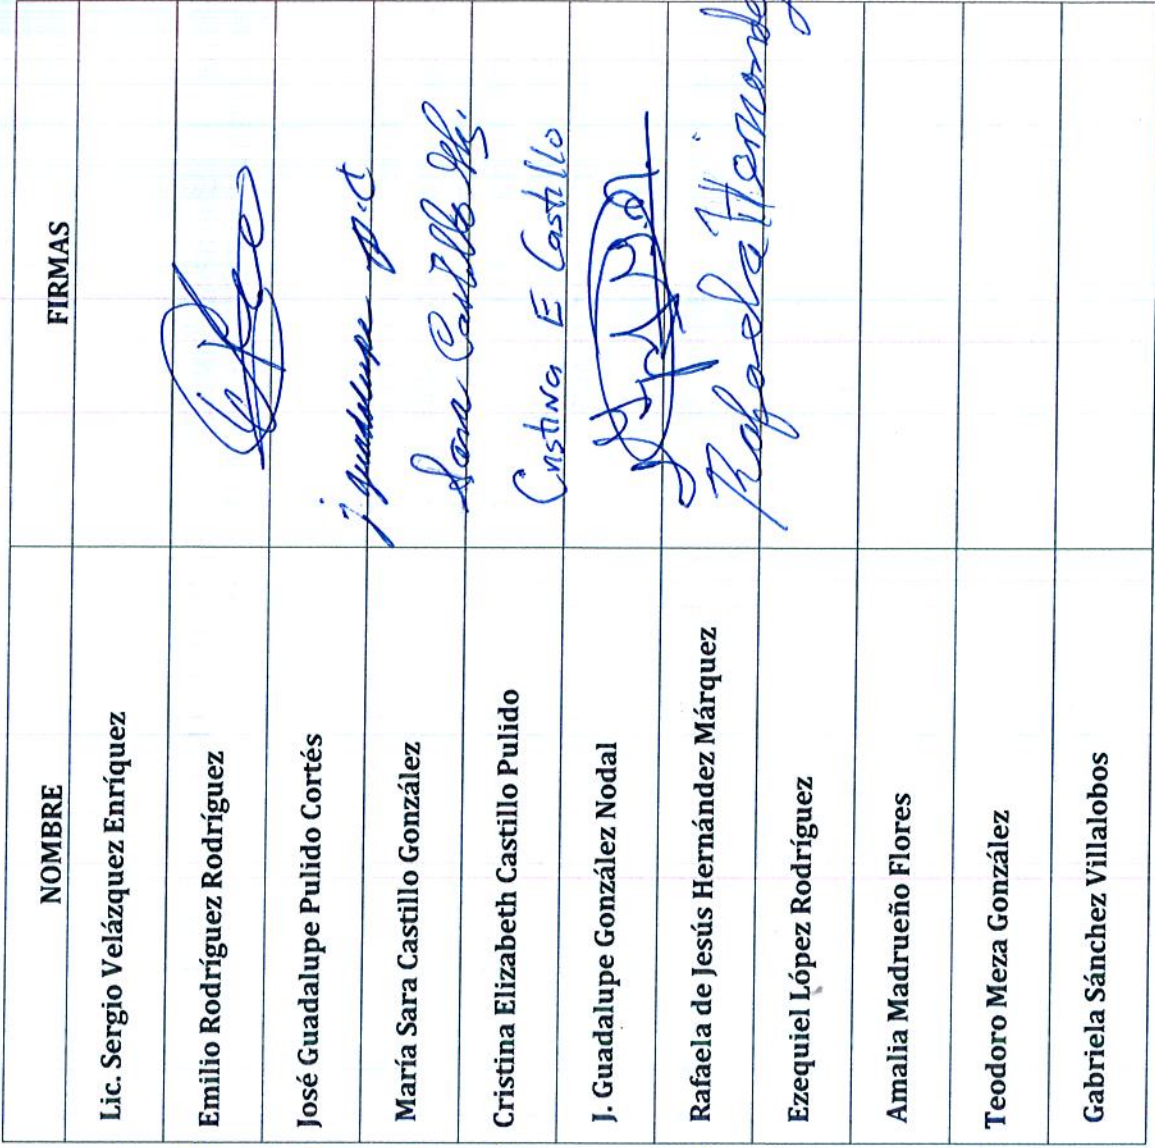 NOMBRE FIRMAS
Lic. Sergio Velázquez Enríquez
Emilio Rodríguez Rodríguez
José Guadalupe Pulido Cortés j. guadalupe p.c
María Sara Castillo González Sara Castillo
Cristina Elizabeth Castillo Pulido Cristina E Castillo
J. Guadalupe González Nodal
Rafaela de Jesús Hernández Márquez Rafaela
Ezequiel López Rodríguez
Amalia Madrueño Flores
Teodoro Meza González
Gabriela Sánchez Villalobos